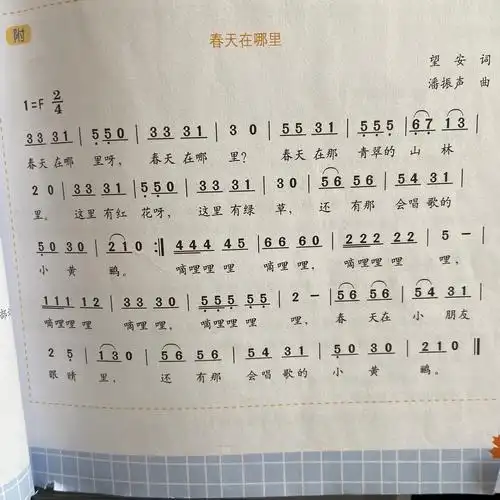 附
春天在哪里
望 安 词
潘振声 曲
1=F 2/4
3 3 3 1 | 5 5 0 | 3 3 3 1 | 3 0 | 5 5 3 1 | 5 5 5 | 6 7 1 3 |
春天 在哪 里呀， 春天 在哪 里？ 春天 在那 青翠的 山 林
2 0 | 3 3 3 1 | 5 5 0 | 3 3 3 1 | 3 0 | 5 6 5 6 | 5 4 3 1 |
里。 这里 有红 花呀， 这里 有绿 草， 还 有那 会唱 歌的
5 0 3 0 | 2 1 0 :‖ 4 4 4 4 5 | 6 6 6 0 | 2 2 2 2 2 | 5 - |
小 黄 鹂。 嘀哩哩 哩 嘀哩 哩， 嘀哩哩 哩 哩，
1 1 1 1 2 | 3 3 3 0 | 5 5 5 5 5 | 2 - | 5 6 5 6 | 5 4 3 1 |
嘀哩哩 哩 嘀哩 哩， 嘀哩哩 哩 哩， 春 天在 小 朋友
2 5 | 1 3 0 | 5 6 5 6 | 5 4 3 1 | 5 0 3 0 | 2 1 0 ‖
眼 睛 里， 还 有那 会唱 歌的 小 黄 鹂。